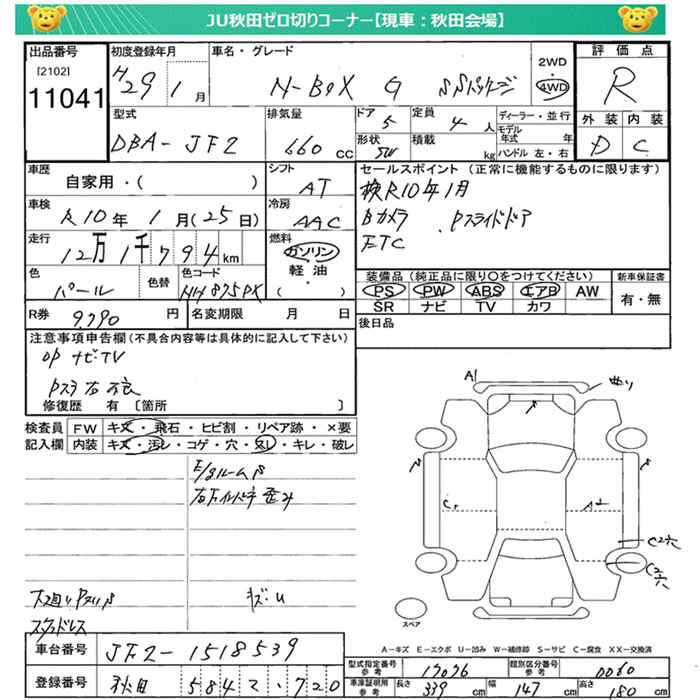 JU秋田ゼロ切りコーナー【現車：秋田会場】
出品番号
[2102]
11041
初度登録年月
H29 1月
車名・グレード
N-BOX G SSパッケージ
2WD
・
4WD
評価点
R
外装 内装
D C
型式
DBA-JF2
排気量
660 cc
ドア
5
定員
4人
形状
5W
積載
kg
ディーラー・並行
モデル年式 年
ハンドル 左・右
車歴
自家用・( )
シフト
AT
車検
R10年1月(25日)
冷房
AAC
走行
12万1千794km
燃料
ガソリン
軽油
・( )
色
パール
色替
色コード
NH875PX
R券
9790円
名変期限 月 日
セールスポイント（正常に機能するものに限ります）
検R10年1月
Bカメラ、Pスライドドア
ETC
装備品（純正品に限り○をつけてください）
PS PW ABS エアB AW
SR ナビ TV カワ
新車保証書
有・無
後日品
注意事項申告欄（不具合内容等は具体的に記入して下さい）
OP ナビTV
修復歴 有 〔箇所 〕
検査員
記入欄
FW キズ・飛石・ヒビ割・リペア跡・×要
内装 キズ・汚レ・コゲ・穴・スレ・キレ・破レ
E/gルームS
右Fインパネ歪み
下廻りPスリS
スタッドレス
キズ・U
A1
曲り
C1
A2
スペア
A-キズ E-エクボ U-凹み W-補修跡 S-サビ C-腐食 XX-交換済
車台番号
JF2-1518539
登録番号
秋田 584 て・720
型式指定番号
参考
17076
類別区分番号
参考
0060
車庫証明用
参考
長さ 339cm 幅 147cm 高さ 180cm